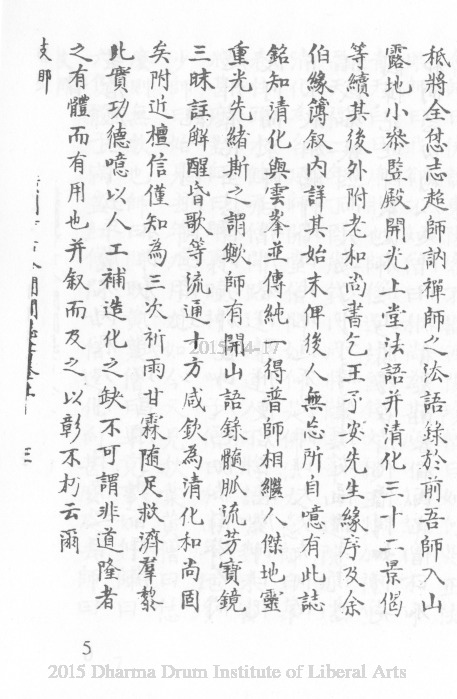 秪將全愆志超師訥禪師之法語錄於前吾師入山
露地小叅豎殿開光上堂法語并清化三十二景偈
等續其後外附老和尚書乞王予安先生緣序及余
伯緣簿叙內詳其始末俾後人無忘所自噫有此誌
銘知清化與雲峯並傳純一得普師相繼人傑地靈
重光先緒斯之謂歟師有開山語錄髓脈流芳寶鏡
三昧註解醒昏歌等流通十方咸欽為清化和尚固
矣附近檀信僅知為三次祈雨甘霖隨足救濟羣黎
此實功德噫以人工補造化之缺不可謂非道隆者
之有體而有用也并叙而及之以彰不朽云爾
支那
三
2015-04-17
5
2015 Dharma Drum Institute of Liberal Arts